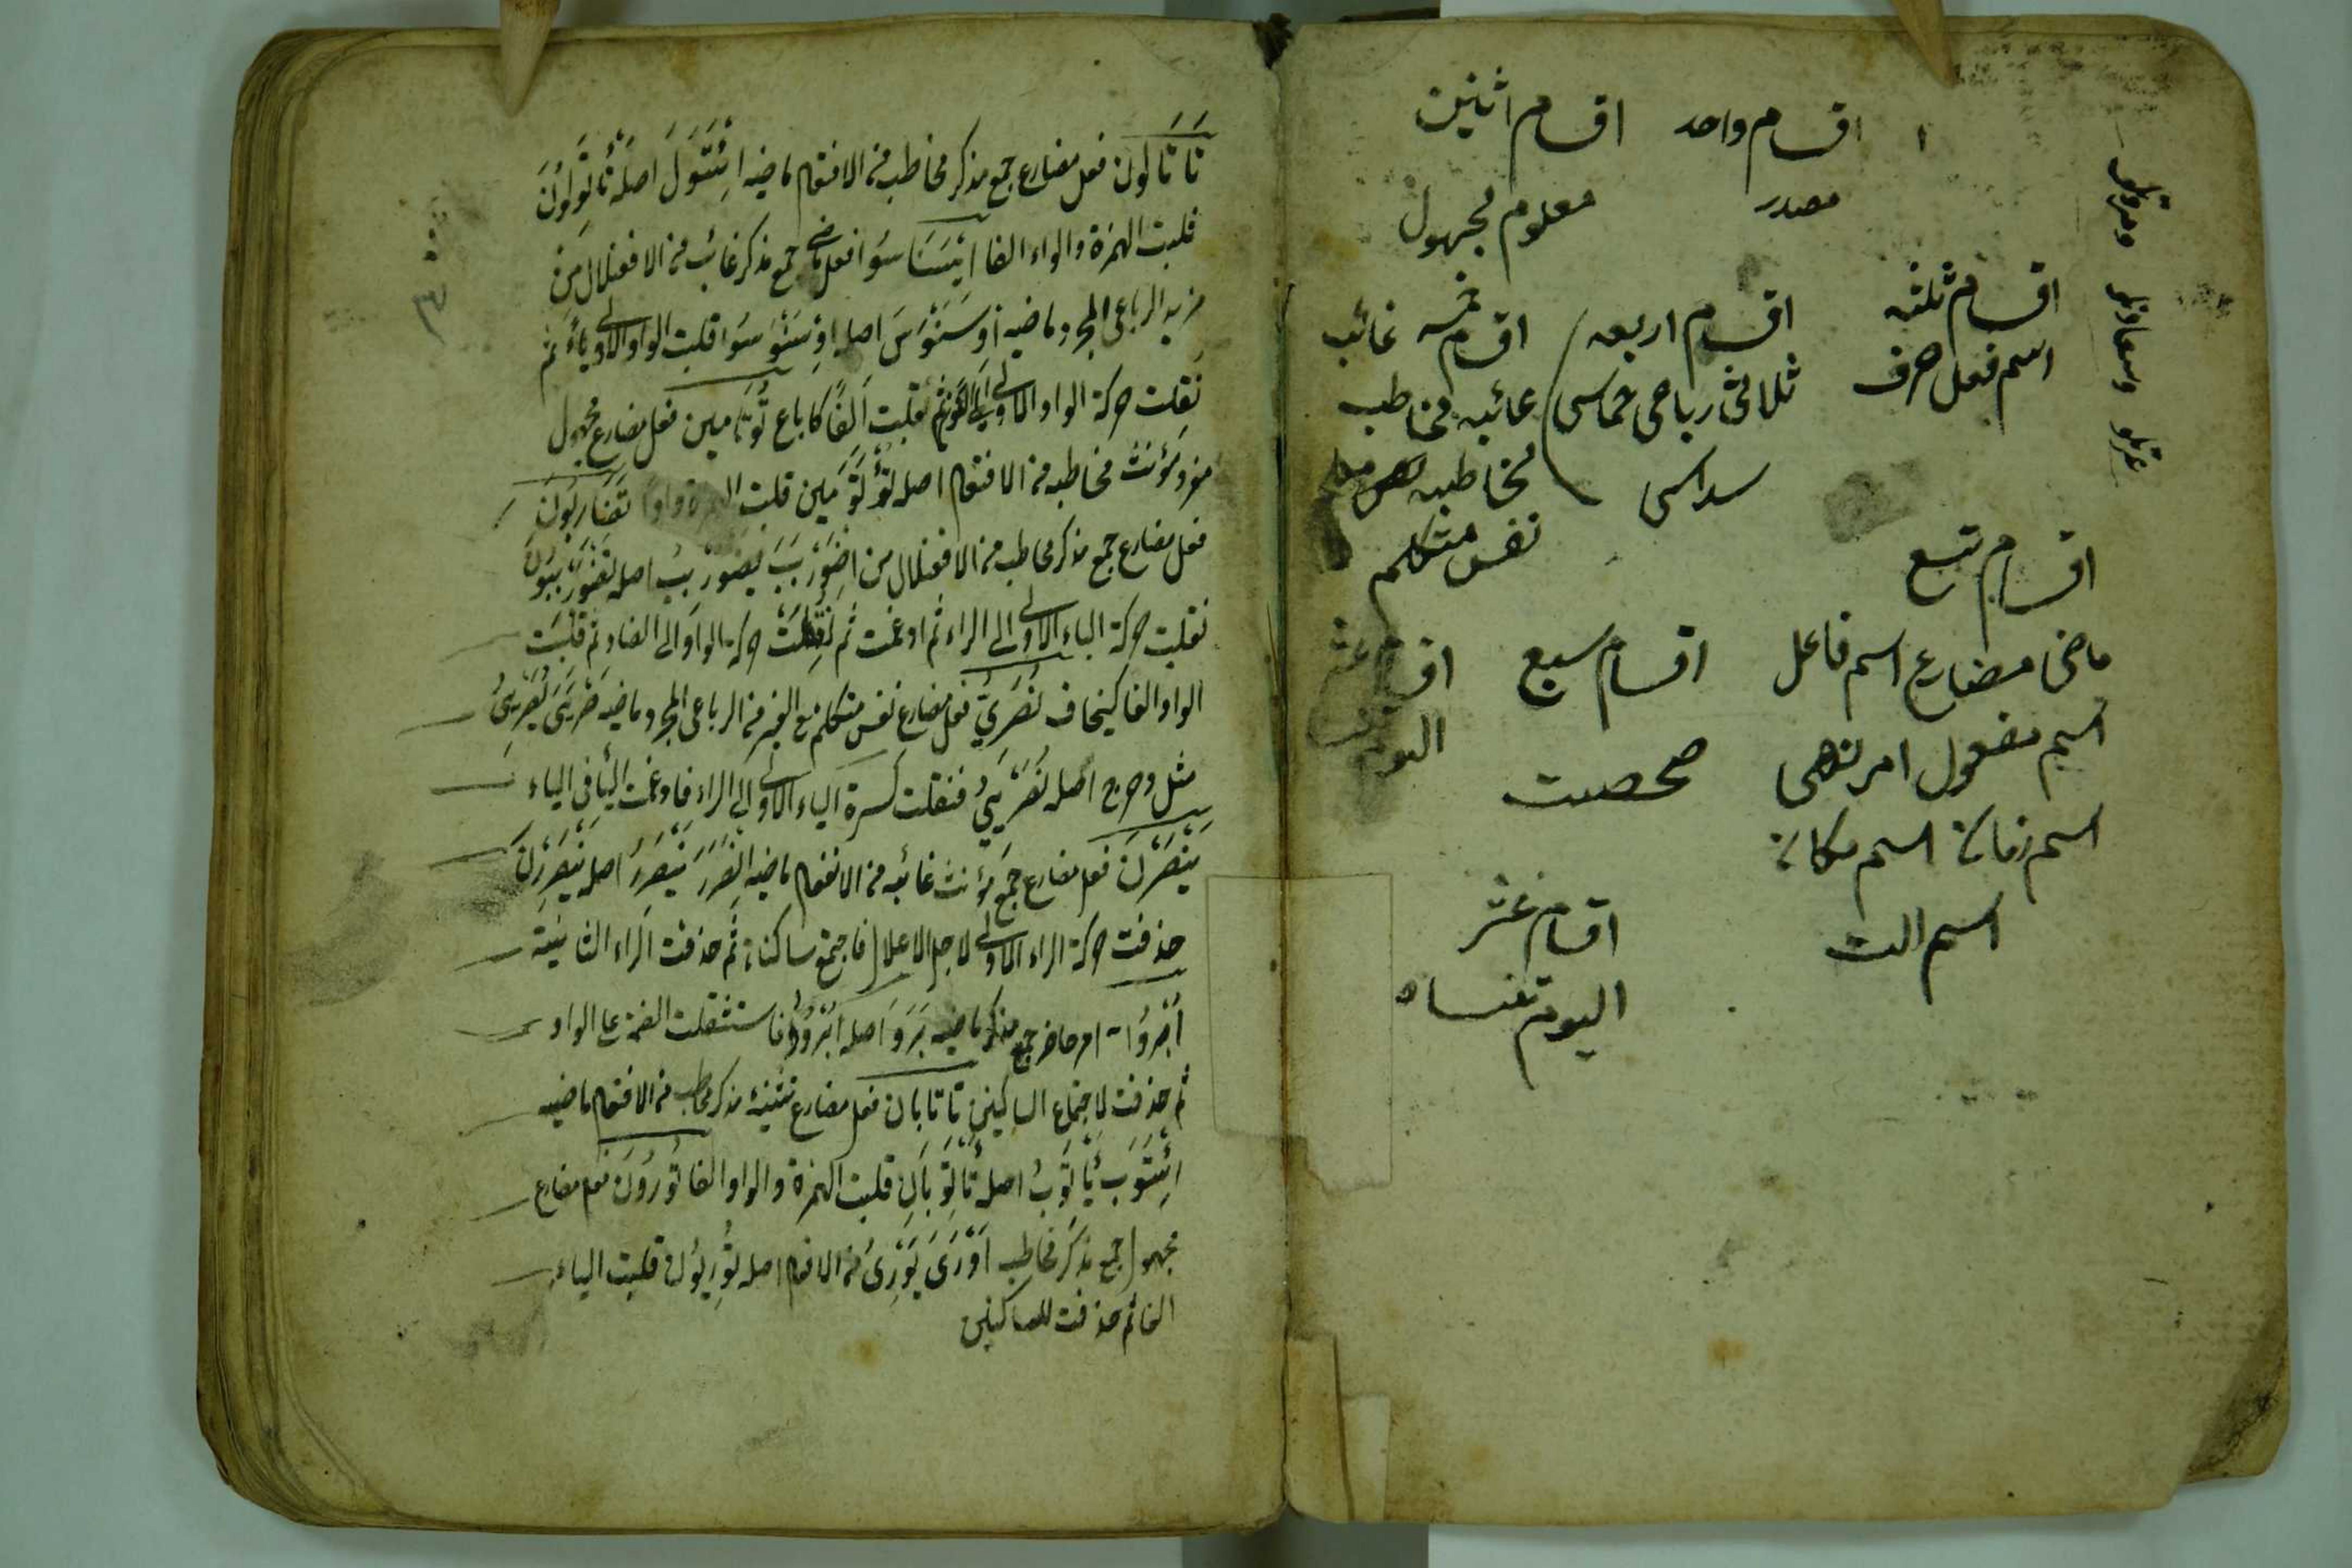 اقسام واحد اقسام اثنين
مصدر معلوم مجهول
اقسام ثلثه
اسم فعل حرف
اقسام اربعه
ثلاثى رباعى خماسى
سداسى
اقسام خمسه غائب
غائبه مخاطب
مخاطبه
نفس متكلم
اقسام تسع
ماضى مضارع اسم فاعل
اسم مفعول امر نهى
اسم زمان اسم مكان
اسم الت
اقسام سبع
صحصت
اقسام عشر
اليوم تنساه
تَاتَالُون فعل مضارع جمع مذكر مخاطب من الافتعال ماضيه ائْتَوَلَ اصله تَأْتَوِلُونَ
قلبت الهمزة والواو الفا ايسَنَاسَوُا فعل ماضى جمع مذكر غائب من الافعنلال من
مزيد الرباعى المجرد ماضيه اِوْسَنْوَسَ اصله اِوْسَنْوَسَوُا قلبت الواو الاولى ياء ثم
نقلت حركة الواو الاولى الى النون ثم قلبت الفًا كاباع تُوتَامين فعل مضارع مجهول
مفرد مؤنث مخاطبه من الافتعال اصله تُؤْتَوَمين قلبت الهمزة واوا تَضَارَبُونَ
فعل مضارع جمع مذكر مخاطب من الافعنلال من اضْوَرْبَبَ يضْوَرْبِبُ اصله تَضْوَرْبِبُونَ
نقلت حركة الباء الاولى الى الراء ثم ادغمت ثم نُقِلَتْ حركة الواو الى الضاد ثم قلبت
الواو الفا كيخاف نُضَرِىُّ فعل مضارع نفس متكلم مع الغير من الرباعى المجرد ماضيه ضَرْيَىَ يُضَرْيِىُ
مثل دحرج اصله نُضَرْيِىُ فنقلت كسرة الياء الاولى الى الراء فادغمت اليا فى الياء
يَنْصَرْنَ فعل مضارع جمع مؤنث غائبه من الانفعال ماضيه انْصَرَرَ يَنْصَرِرُ اصله يَنْصَرِرْنَ
حذفت حركة الراء الاولى لاجل الاعلال فاجتمع ساكنان ثم حذفت الراء الثانية
اُبْرُوا امر حاضر جمع مذكر ماضيه بَرَوَ اصله اُبْرُوُوا فاستثقلت الضمة على الواو
ثم حذفت لاجتماع الساكنين تاتابان فعل مضارع تثنية مذكر مخاطب من الافتعال ماضيه
ائْتَوَبَ يَأْتَوِبُ اصله تَأْتَوِبَانِ قلبت الهمزة والواو الفا تُورَوْنَ فعل مضارع
مجهول جمع مذكر مخاطب اَوْرَىَ يُوْرِىُ من الافعال اصله تُوْرَيُونَ قلبت الياء
الفا ثم حذفت للساكنين